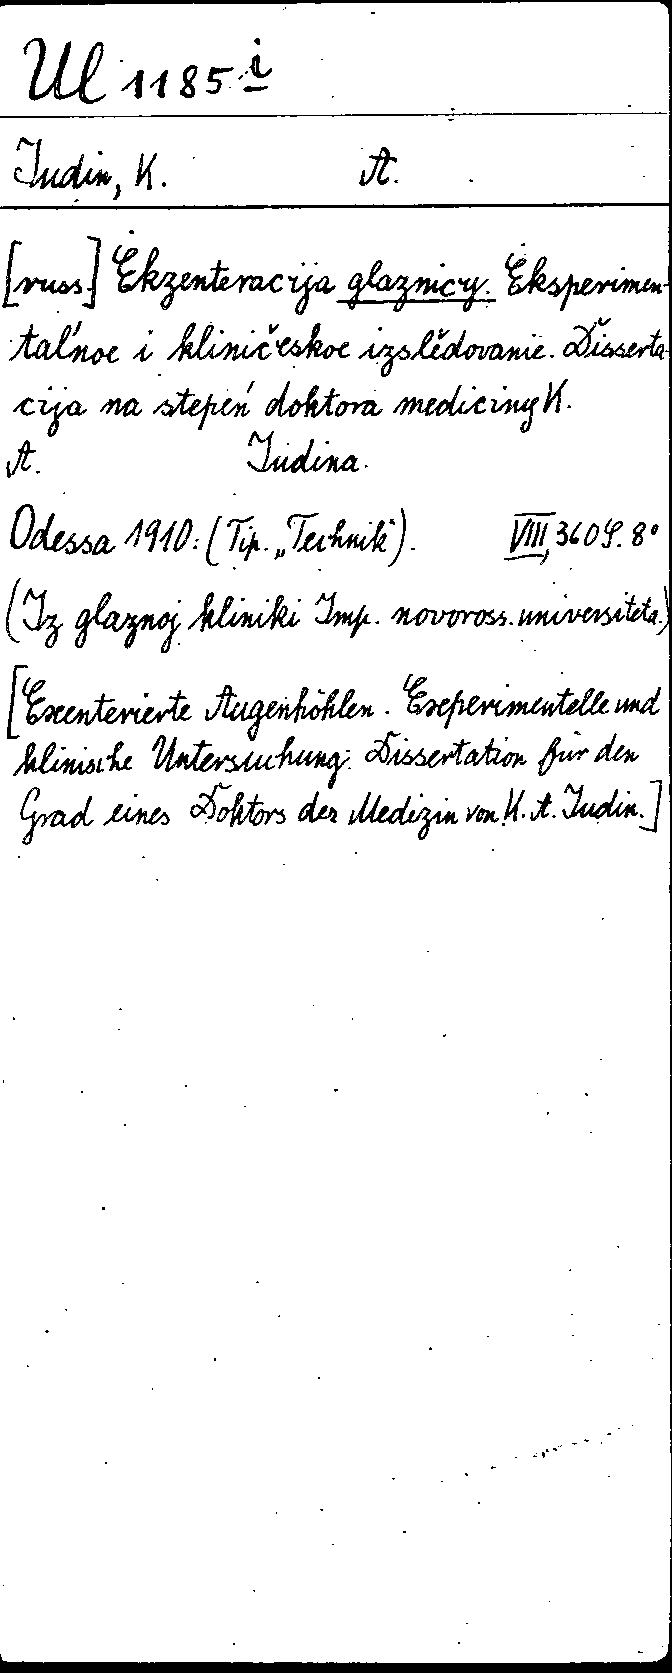 Ul 1185 i
Judin, K. A.
[russ.] Ėkzenteracija glaznicy. Ėksperimen-
tal'noe i kliničeskoe izslědovanie. Disserta-
cija na stepeń doktora mediciny K.
A. Judina.
Odessa 1910: (Tip. „Technik“). VIII, 360 S. 8°
(Iz glaznoj kliniki Imp. novoross. universiteta.)
[Exenterierte Augenhöhlen. Experimentelle und
klinische Untersuchung. Dissertation für den
Grad eines Doktors der Medizin von K. A. Judin.]